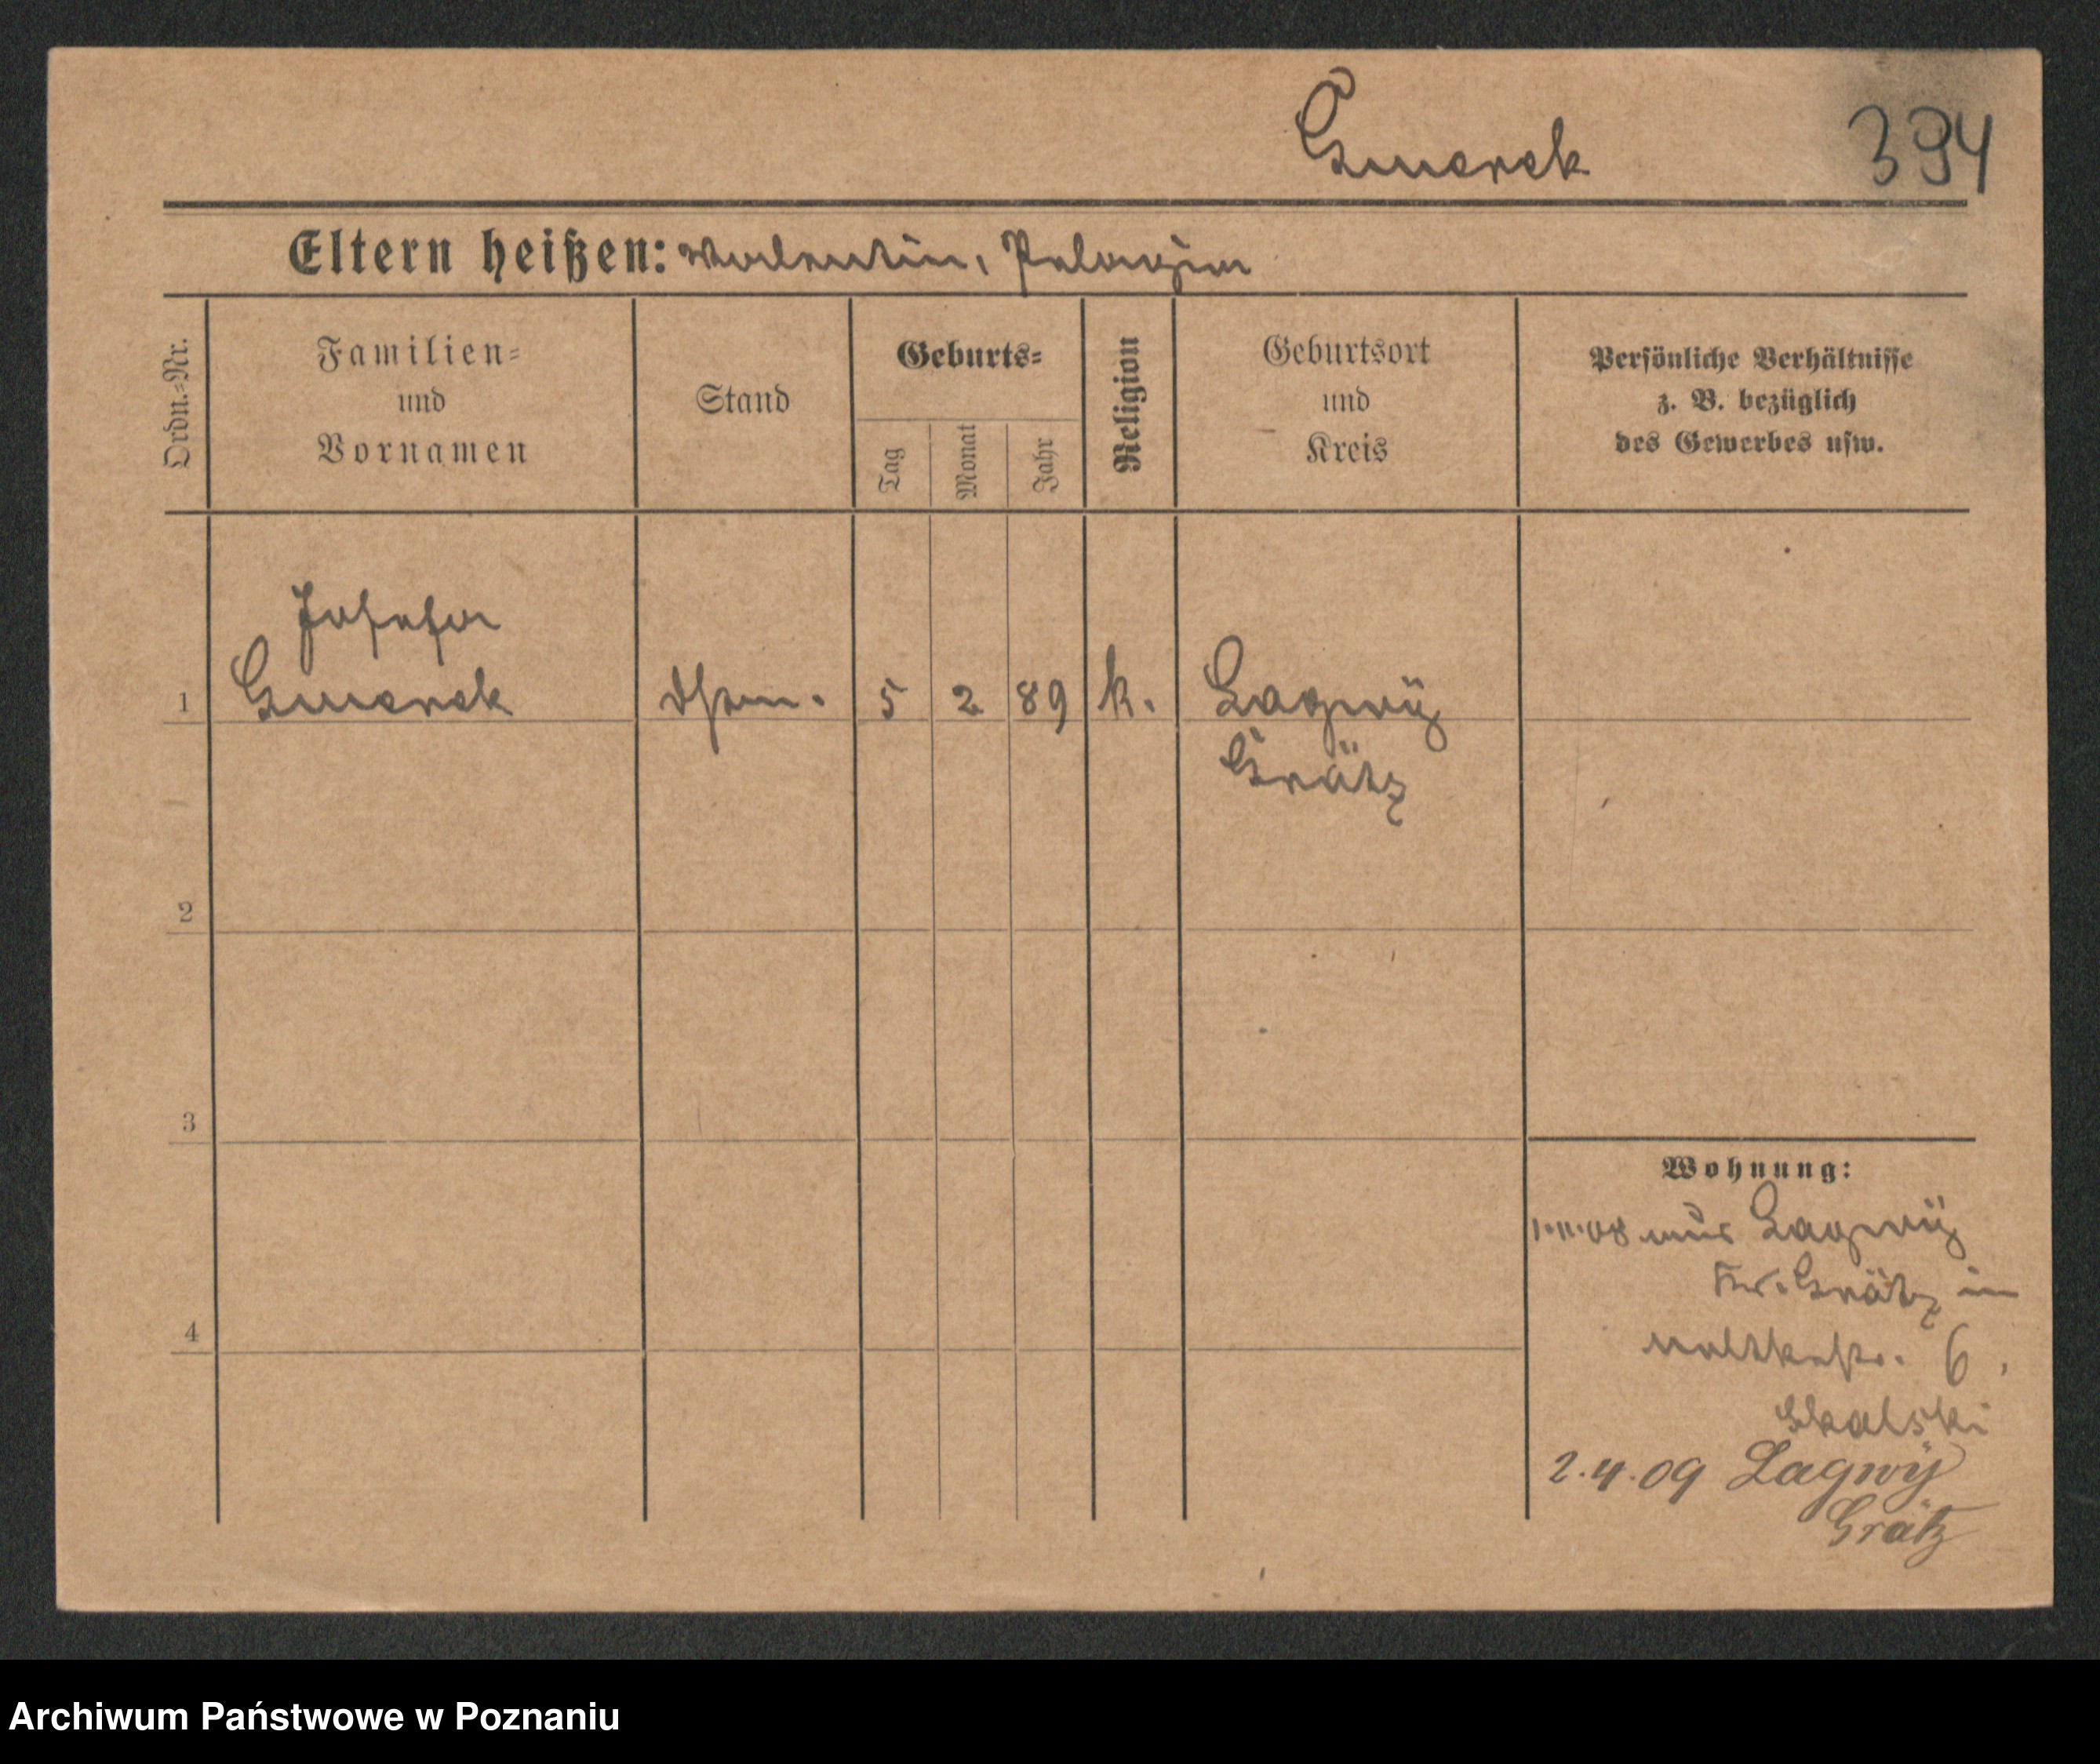 Gmerek 394
Eltern heißen: Valentin, Pelagia
Ordn.-Nr.
Familien-
und
Vornamen
Stand
Geburts-
Tag
Monat
Jahr
Religion
Geburtsort
und
Kreis
Persönliche Verhältnisse
z. B. bezüglich
des Gewerbes usw.
Josefa
1 Gmerek 5 2 89 k. Lagwÿ
Grätz
2
3
4
Wohnung:
1.11.08 aus Lagwÿ
Kr. Grätz in
Moltkestr. 6,
Skalski
2.4.09 Lagwÿ
Grätz
Archiwum Państwowe w Poznaniu